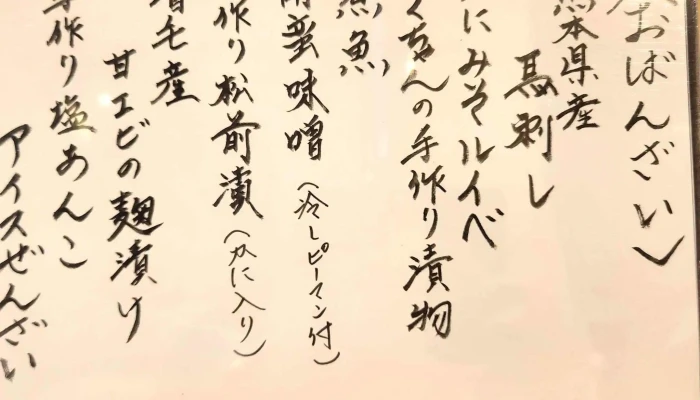 おばんざい〉
熊本県産
馬刺し
にみそルイペ
くちゃんの手作り漬物
魚
南蛮味噌（冷しピーマン付）
作り松前漬（かに入り）
増毛産
甘エビの麹漬け
手作り塩あんこ
アイスぜんざい